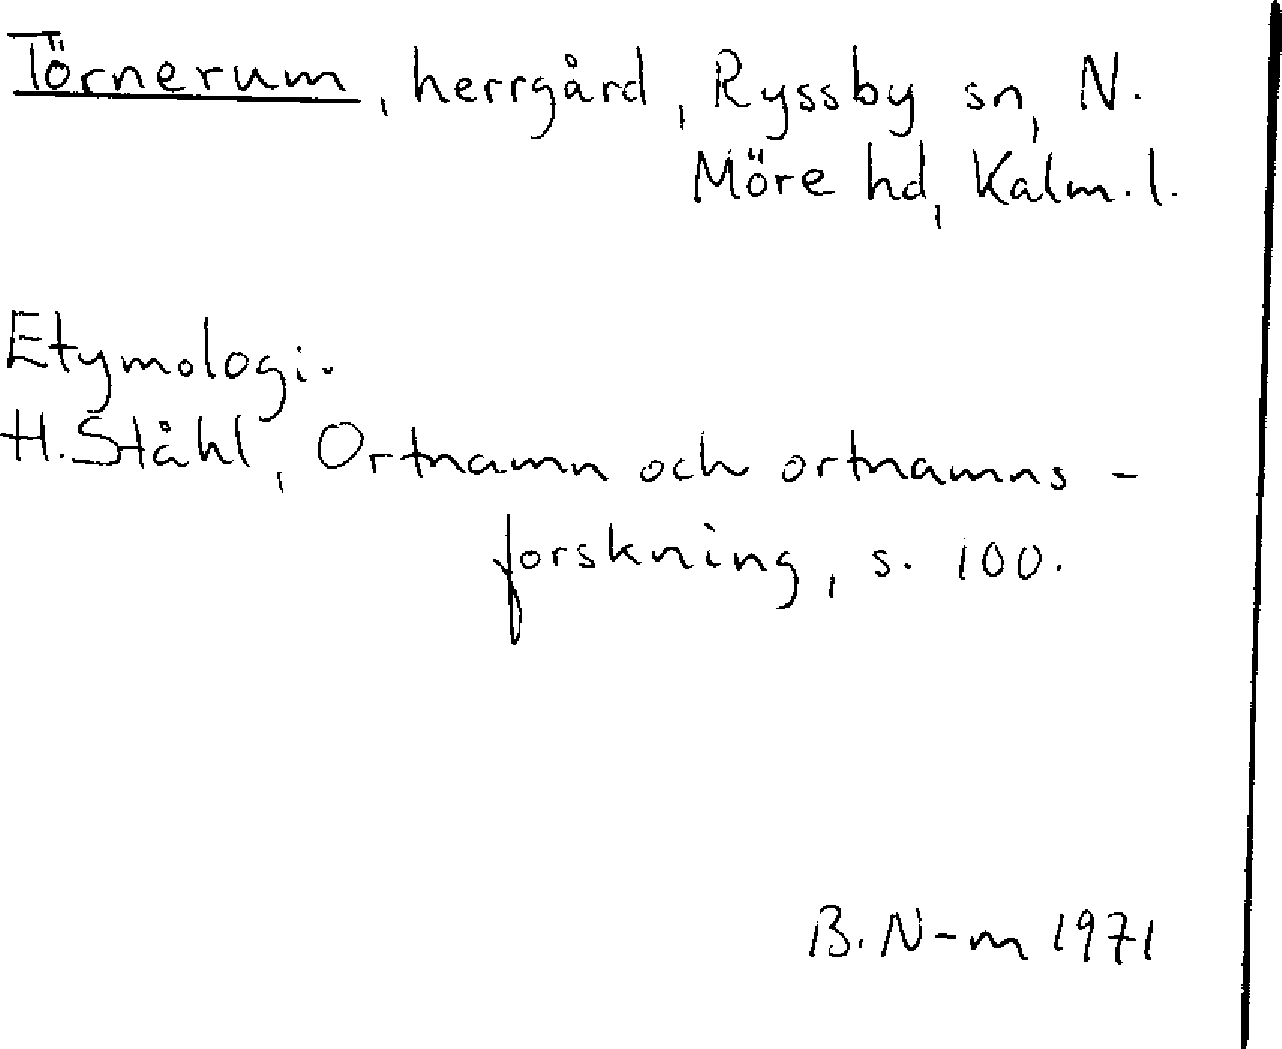 Törnerum, herrgård, Ryssby sn, N.
Möre hd, Kalm. l.
Etymologi.
H. Ståhl, Ortnamn och ortnamns-
forskning, s. 100.
B. N-m 1971